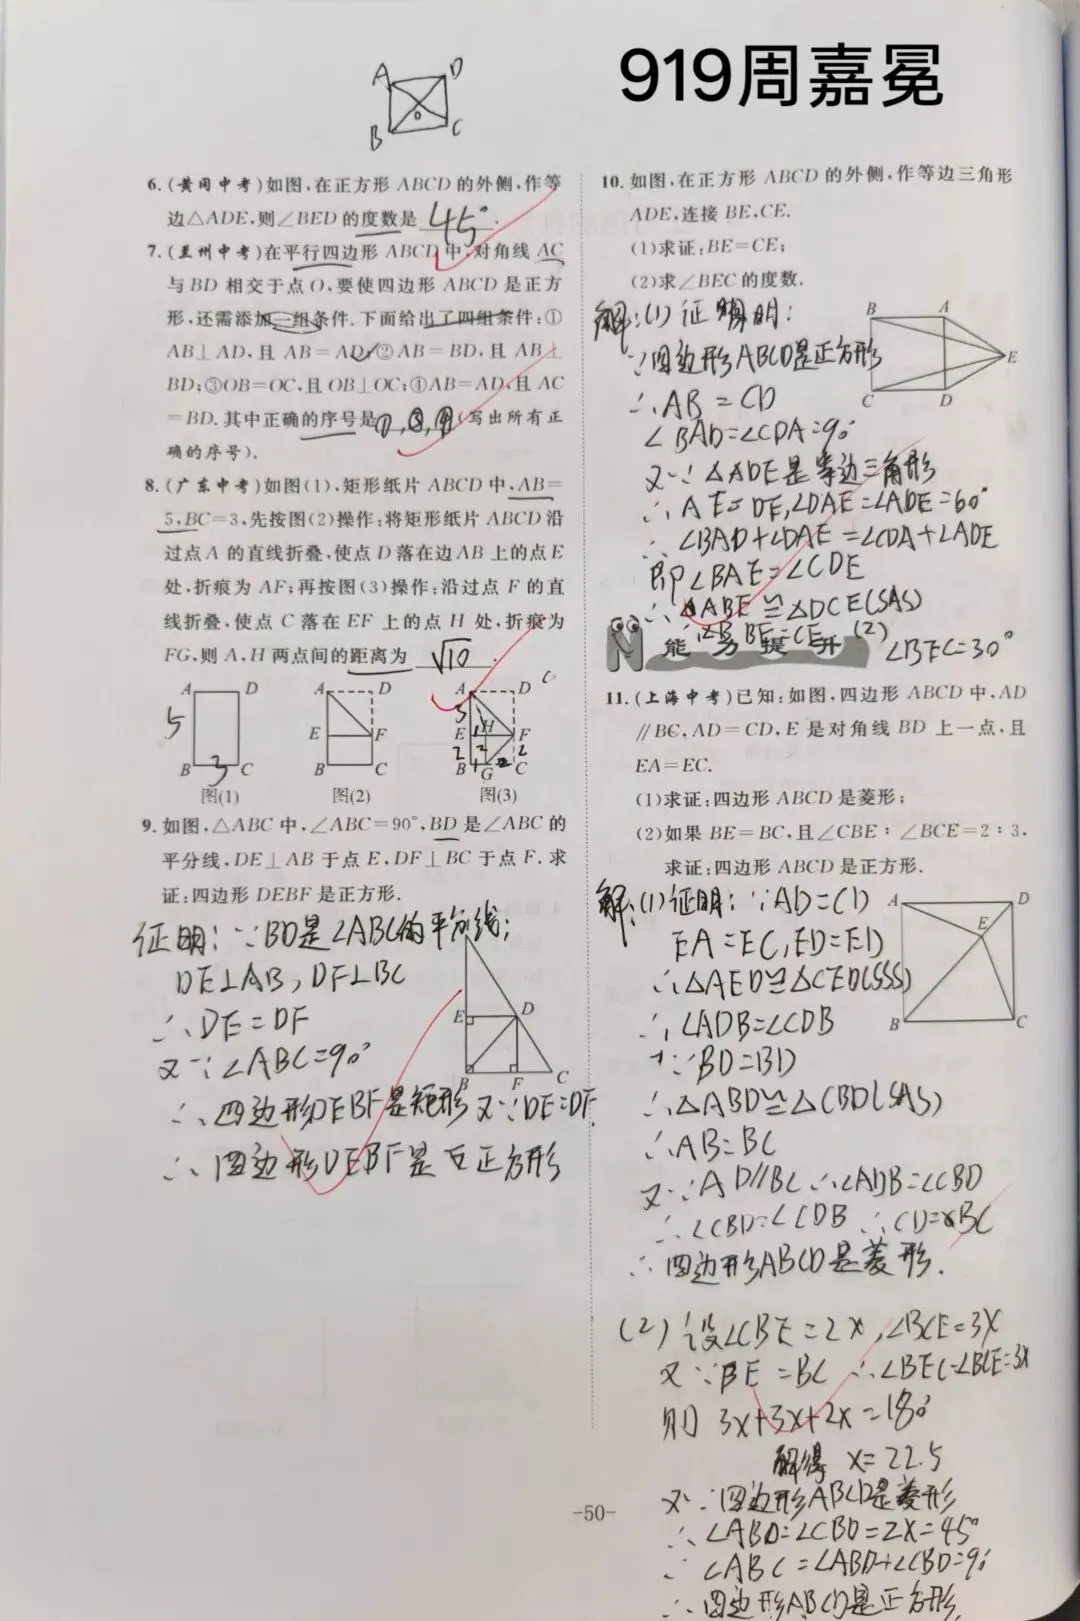 919周嘉冕
A D
O
B C
6.(黄冈中考)如图,在正方形 ABCD 的外侧,作等
边△ADE,则∠BED 的度数是 45°.
7.(兰州中考)在平行四边形 ABCD 中,对角线 AC
与 BD 相交于点 O,要使四边形 ABCD 是正方
形,还需添加一组条件.下面给出了四组条件:①
AB⊥AD,且 AB=AD;②AB=BD,且 AB⊥
BD;③OB=OC,且 OB⊥OC;④AB=AD,且 AC
=BD.其中正确的序号是①,③,④(写出所有正
确的序号).
8.(广东中考)如图(1),矩形纸片 ABCD 中,AB=
5,BC=3,先按图(2)操作:将矩形纸片 ABCD 沿
过点 A 的直线折叠,使点 D 落在边 AB 上的点 E
处,折痕为 AF;再按图(3)操作:沿过点 F 的直
线折叠,使点 C 落在 EF 上的点 H 处,折痕为
FG,则 A,H 两点间的距离为 √10.
A D A D A D
5 3
E F E 1 H F
2 2 2
B 3 C B C B 1 G 2 C
图(1) 图(2) 图(3)
9.如图,△ABC 中,∠ABC=90°,BD 是∠ABC 的
平分线,DE⊥AB 于点 E,DF⊥BC 于点 F.求
证:四边形 DEBF 是正方形.
证明:∵BD是∠ABC的平分线;
DE⊥AB,DF⊥BC
∴DE=DF
又∵∠ABC=90°
∴四边形DEBF是矩形 又∵DE=DF
∴四边形DEBF是正方形
E D
B F C
10.如图,在正方形 ABCD 的外侧,作等边三角形
ADE,连接 BE,CE.
(1)求证:BE=CE;
(2)求∠BEC 的度数.
解:(1)证明:
∵四边形ABCD是正方形
∴AB=CD
∠BAD=∠CDA=90°
又∵△ADE是等边三角形
∴AE=DE,∠DAE=∠ADE=60°
∴∠BAD+∠DAE=∠CDA+∠ADE
即∠BAE=∠CDE
∴△ABE≌△DCE(SAS)
∴BE=CE (2) ∠BEC=30°
B A
E
C D
能力提升
11.(上海中考)已知:如图,四边形 ABCD 中,AD
∥BC,AD=CD,E 是对角线 BD 上一点,且
EA=EC.
(1)求证:四边形 ABCD 是菱形;
(2)如果 BE=BC,且∠CBE∶∠BCE=2∶3,
求证:四边形 ABCD 是正方形.
解:(1)证明:∵AD=CD
EA=EC,ED=ED
∴△AED≌△CED(SSS)
∴∠ADB=∠CDB
又∵BD=BD
∴△ABD≌△CBD(SAS)
∴AB=BC
又∵AD∥BC ∴∠ADB=∠CBD
∴∠CBD=∠CDB ∴CD=BC
∴四边形ABCD是菱形.
A D
E
B C
(2)设∠CBE=2x,∠BCE=3x
又∵BE=BC ∴∠BEC=∠BCE=3x
则 3x+3x+2x=180°
解得 x=22.5
又∵四边形ABCD是菱形
∴∠ABD=∠CBD=2x=45°
∴∠ABC=∠ABD+∠CBD=90°
∴四边形ABCD是正方形
-50-